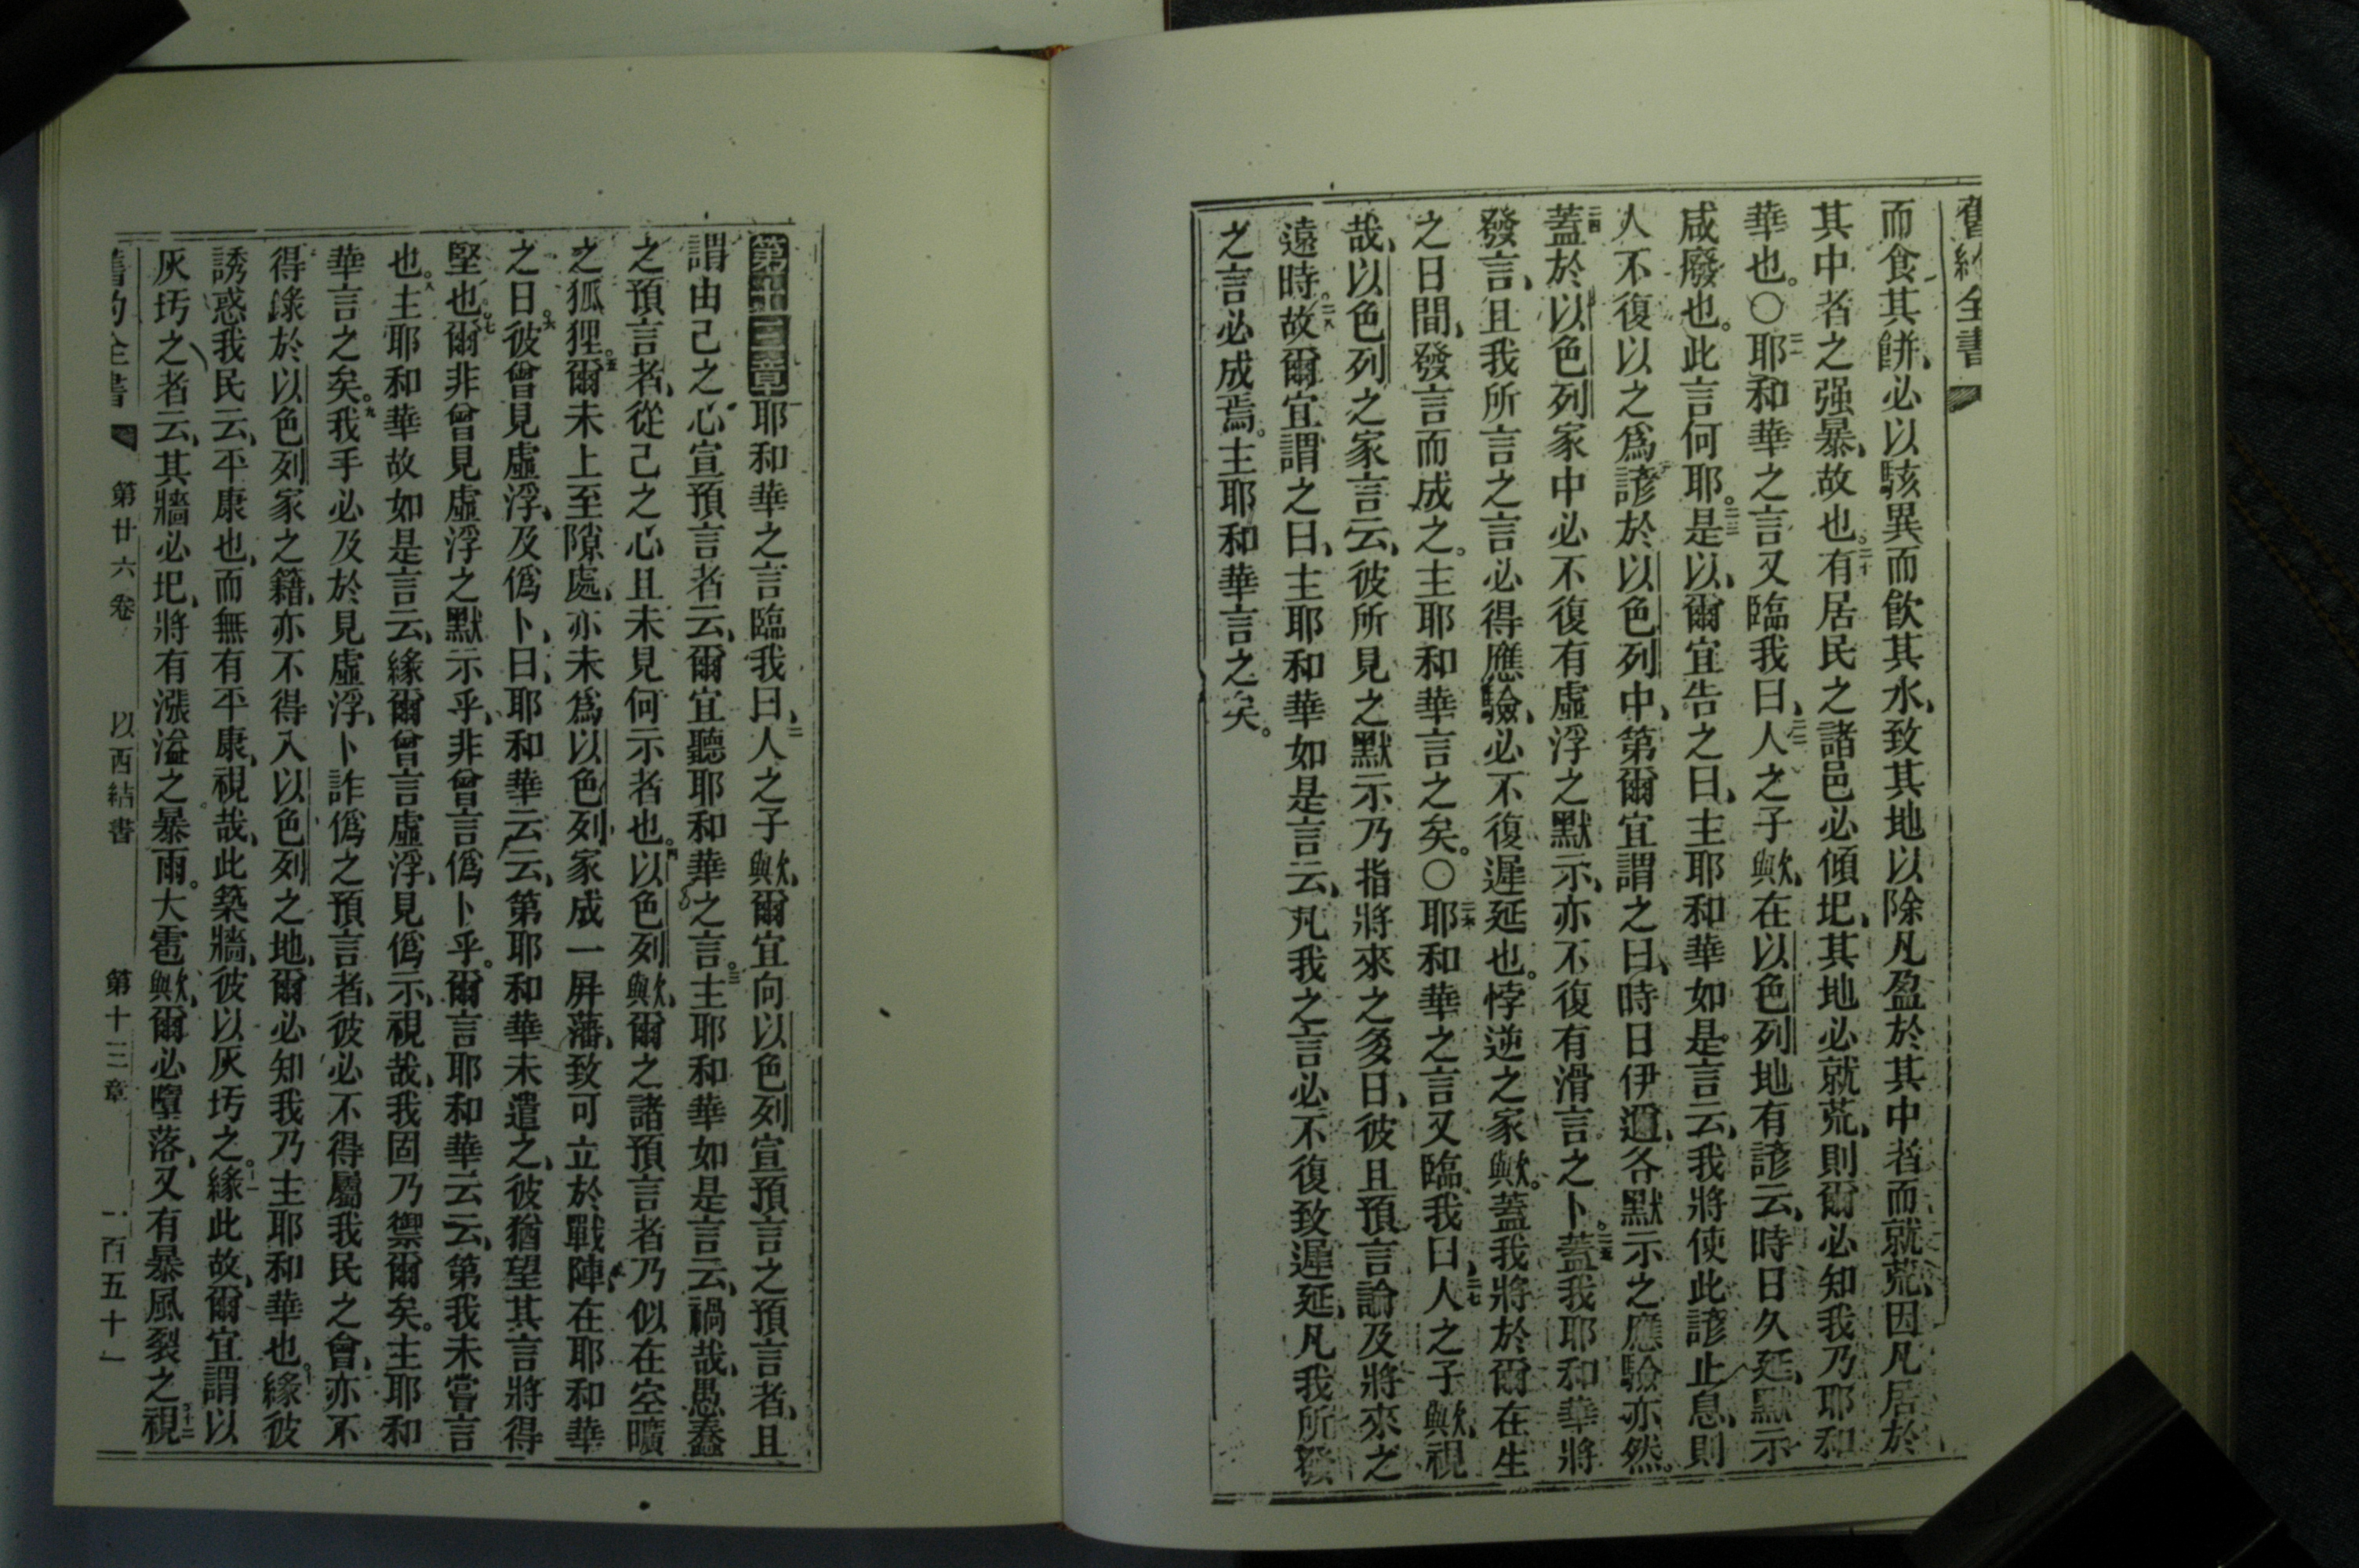 舊約全書
而食其餅、必以駭異而飮其水、致其地以除凡盈於其中者而就荒、因凡居於
其中者之强暴、故也。二十有居民之諸邑必傾圯、其地必就荒、則爾必知我乃耶和
華也。○二一耶和華之言又臨我曰、二二人之子歟、在以色列地有諺云、時日久延、默示
咸廢也。此言何耶。二三是以、爾宜告之曰、主耶和華如是言云、我將使此諺止息、則
人不復以之爲諺於以色列中、第爾宜謂之曰、時日伊邇、各默示之應驗亦然。
二四蓋於以色列家中必不復有虛浮之默示、亦不復有滑言之卜。二五蓋我耶和華將
發言、且我所言之言必得應驗、必不復遲延也。悖逆之家歟。蓋我將於爾在生
之日間、發言而成之。主耶和華言之矣。○二六耶和華之言又臨我曰、二七人之子歟、視
哉、以色列之家言云、彼所見之默示乃指將來之多日、彼且預言論及將來之
遠時。二八故爾宜謂之曰、主耶和華如是言云、凡我之言必不復致遲延、凡我所發
之言必成焉。主耶和華言之矣。
第十三章耶和華之言臨我曰、二人之子歟、爾宜向以色列宣預言之預言者、且
謂由己之心宣預言者云、爾宜聽耶和華之言。三主耶和華如是言云、禍哉、愚蠢
之預言者、從己之心且未見何示者也。四以色列歟、爾之諸預言者乃似在空曠
之狐狸。五爾未上至隙處、亦未爲以色列家成一屏藩、致可立於戰陣、在耶和華
之日。六彼曾見虛浮、及僞卜、曰、耶和華云云、第耶和華未遣之、彼猶望其言將得
堅也。七爾非曾見虛浮之默示乎、非曾言僞卜乎。爾言耶和華云云、第我未嘗言
也。八主耶和華故如是言云、緣爾曾言虛浮、見僞示、視哉、我固乃禦爾矣。主耶和
華言之矣。九我手必及於見虛浮、卜詐僞之預言者、彼必不得屬我民之會、亦不
得錄於以色列家之籍、亦不得入以色列之地、爾必知我乃主耶和華也。十緣彼
誘惑我民云、平康也、而無有平康、視哉、此築牆、彼以灰圬之。十一緣此故、爾宜謂以
灰圬之者云、其牆必圯、將有漲溢之暴雨。大雹歟、爾必墮落、又有暴風裂之。十二視
舊約全書 第廿六卷 以西結書 第十三章 一百五十一